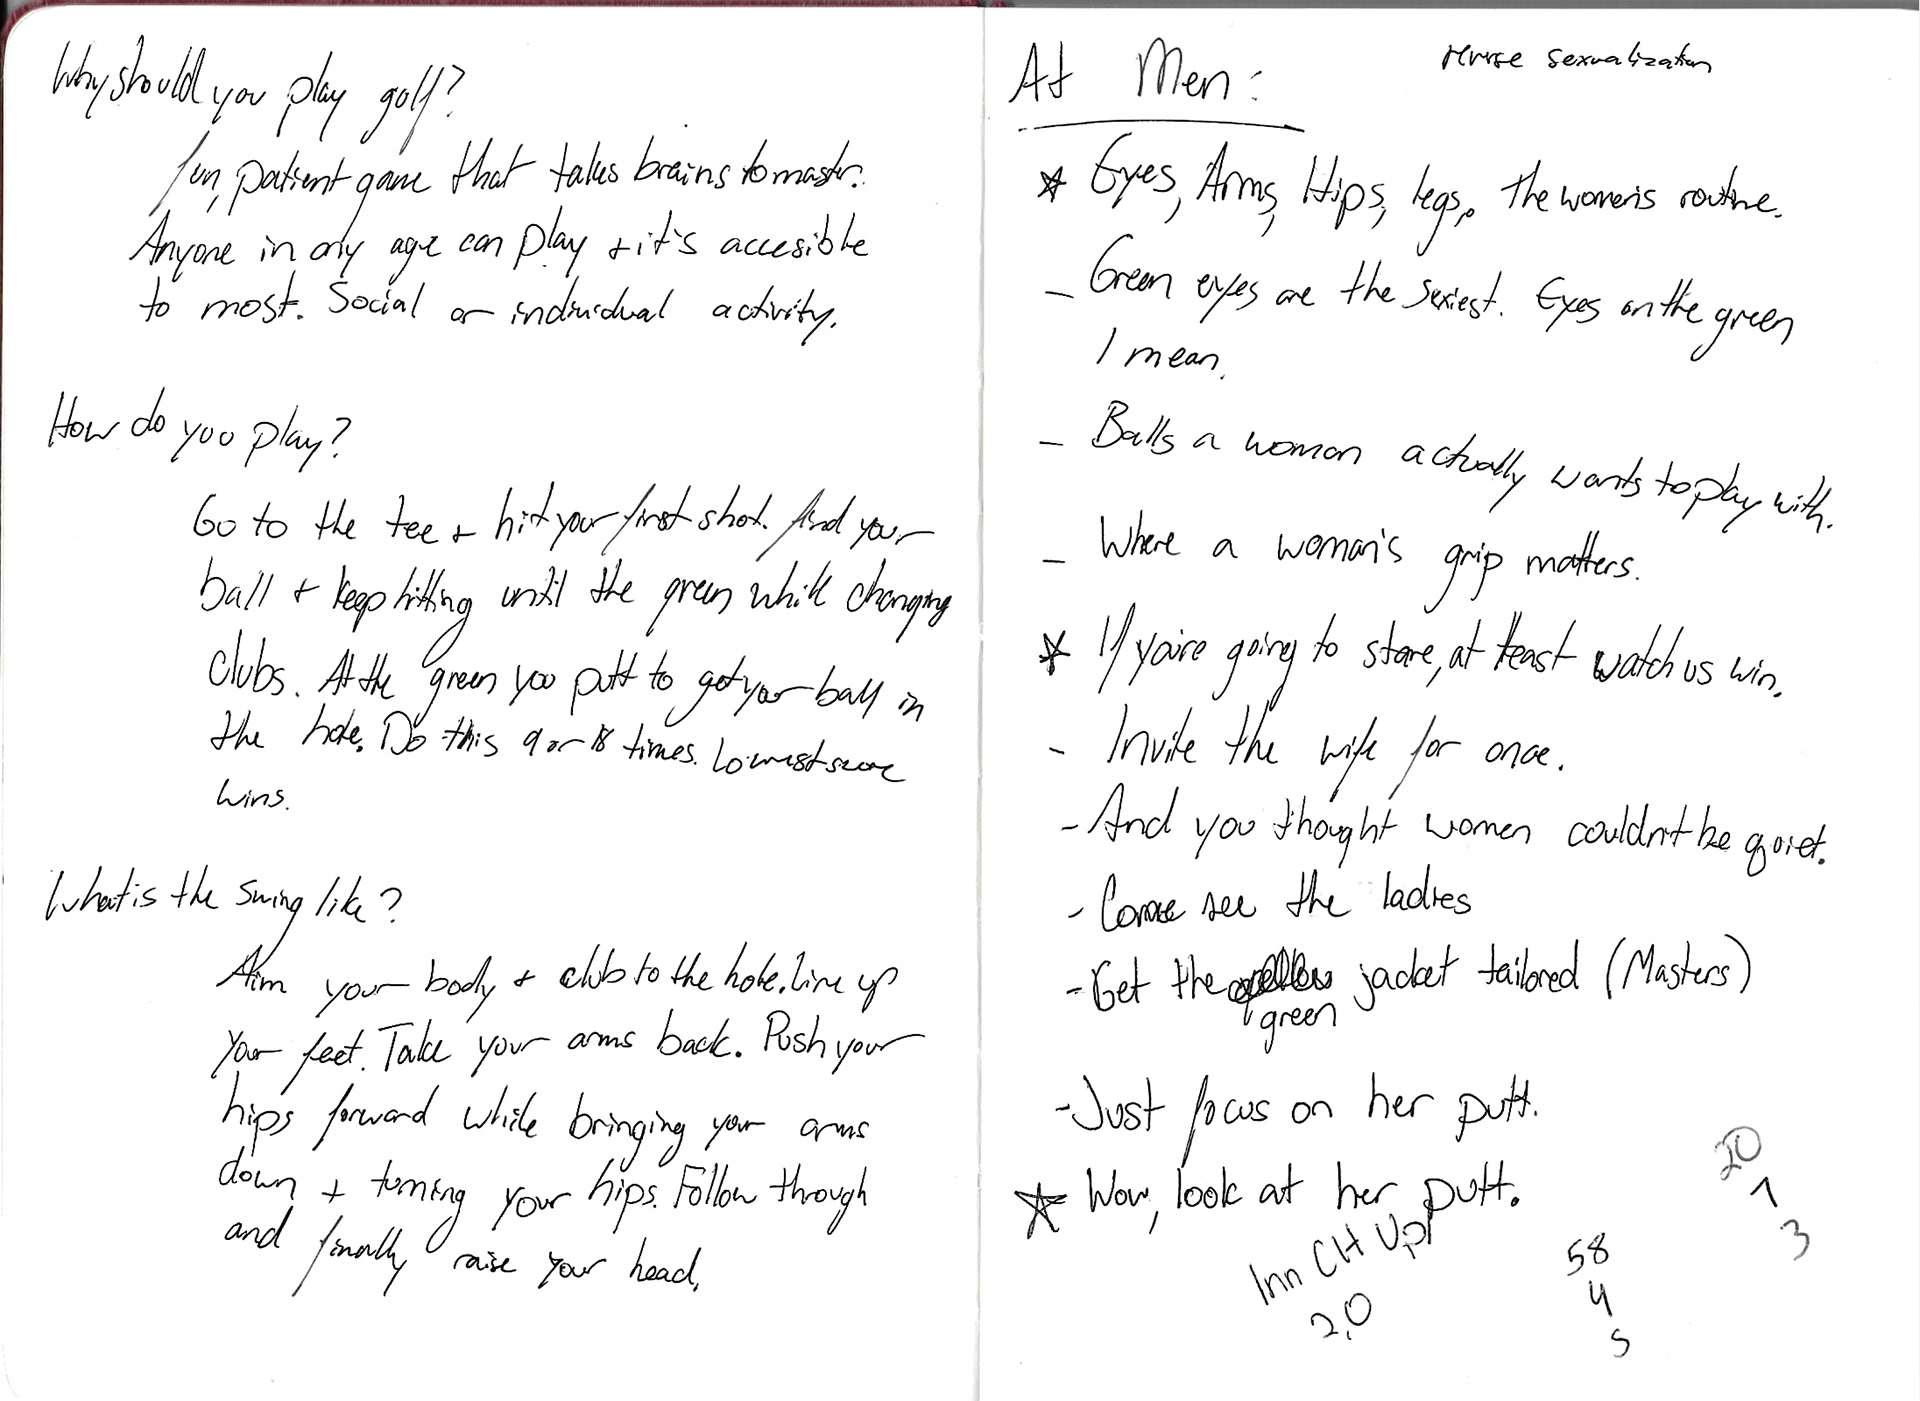 Why should you play golf?
fun, patient game that takes brains to master.
Anyone in any age can play + it's accesible
to most. Social or individual activity.
How do you play?
Go to the tee + hit your first shot. find your
ball + keep hitting until the green while changing
clubs. At the green you putt to get your ball in
the hole. Do this 9 or 18 times. Lowest score
wins.
What is the swing like?
Aim your body + club to the hole. Line up
your feet. Take your arms back. Push your
hips forward while bringing your arms
down + turning your hips. Follow through
and finally raise your head.
reverse sexualization
At Men:
* Eyes, Arms, Hips, legs. The women's routine.
- Green eyes are the sexiest. Eyes on the green
I mean.
- Balls a woman actually wants to play with.
- Where a woman's grip matters.
* If you're going to stare, at least watch us win.
- Invite the wife for once.
- And you thought women couldn't be quiet.
- Come see the ladies
- Get the green jacket tailored (Masters)
- Just focus on her putt.
* Wow, look at her putt.
20
1
3
Inn CH Up
2,0
58
4
5